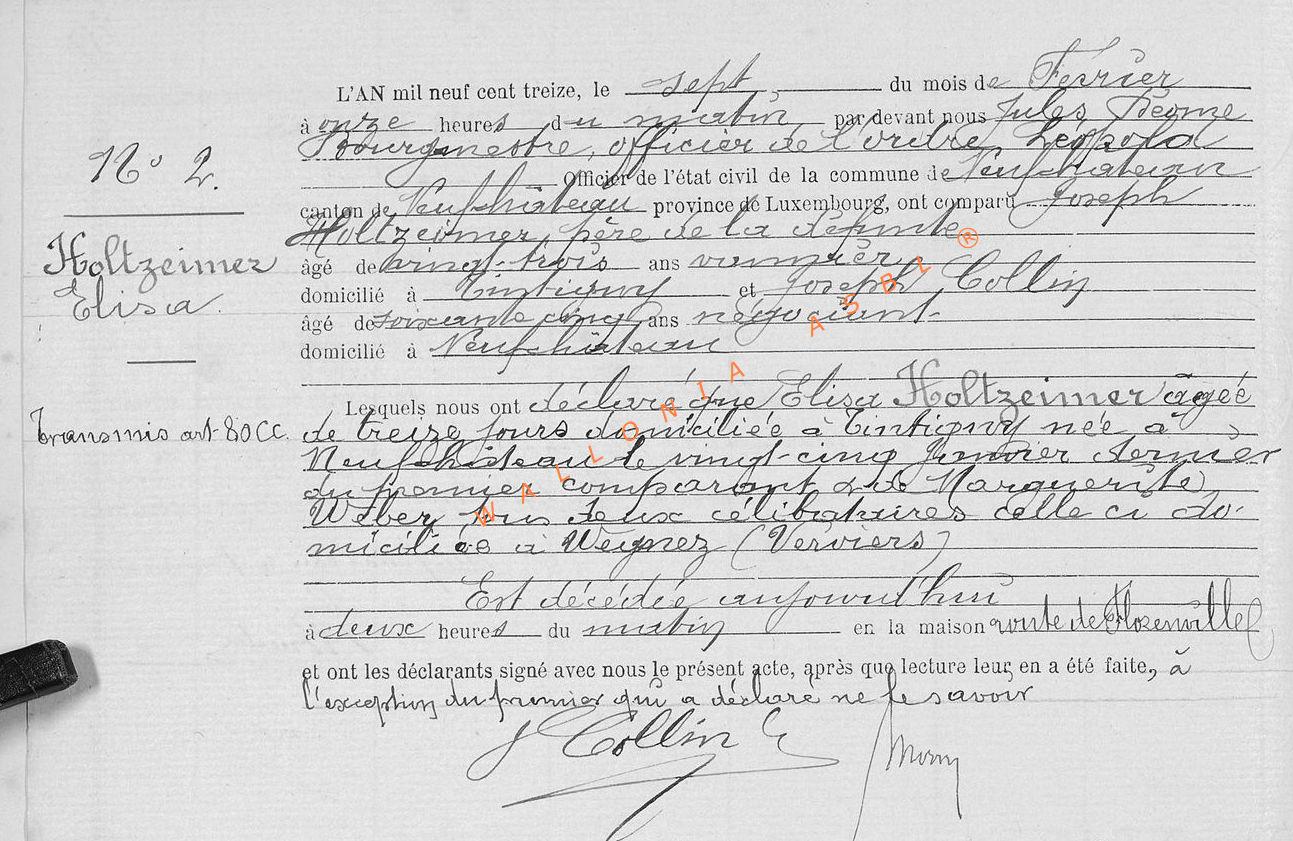 L'AN mil neuf cent treize, le sept du mois de Février
à onze heures du matin par devant nous Jules
Bourgmestre, officier de l'ordre Léopold
Officier de l'état civil de la commune de Neufchâteau
canton de Neufchâteau province de Luxembourg, ont comparu Joseph
Holtzeimer, père de la défunte
âgé de vingt-trois ans vannier
domicilié à Tintigny et Joseph Collin
âgé de soixante cinq ans négociant
domicilié à Neufchâteau
N° 2.
Holtzeimer
Elisa.
Transmis art 80 CC.
Lesquels nous ont déclaré que Elisa Holtzeimer âgée
de treize jours domiciliée à Tintigny née à
Neufchâteau le vingt-cinq Janvier dernier
du premier comparant & de Marguerite
Weber, tous deux célibataires celle ci do-
miciliée à Wegnez (Verviers)
Est décédée aujourd'hui
à deux heures du matin en la maison route de Florenville
et ont les déclarants signé avec nous le présent acte, après que lecture leur en a été faite, à
l'exception du premier qui a déclaré ne le savoir
J Collin
WALLONIA ASBL ®